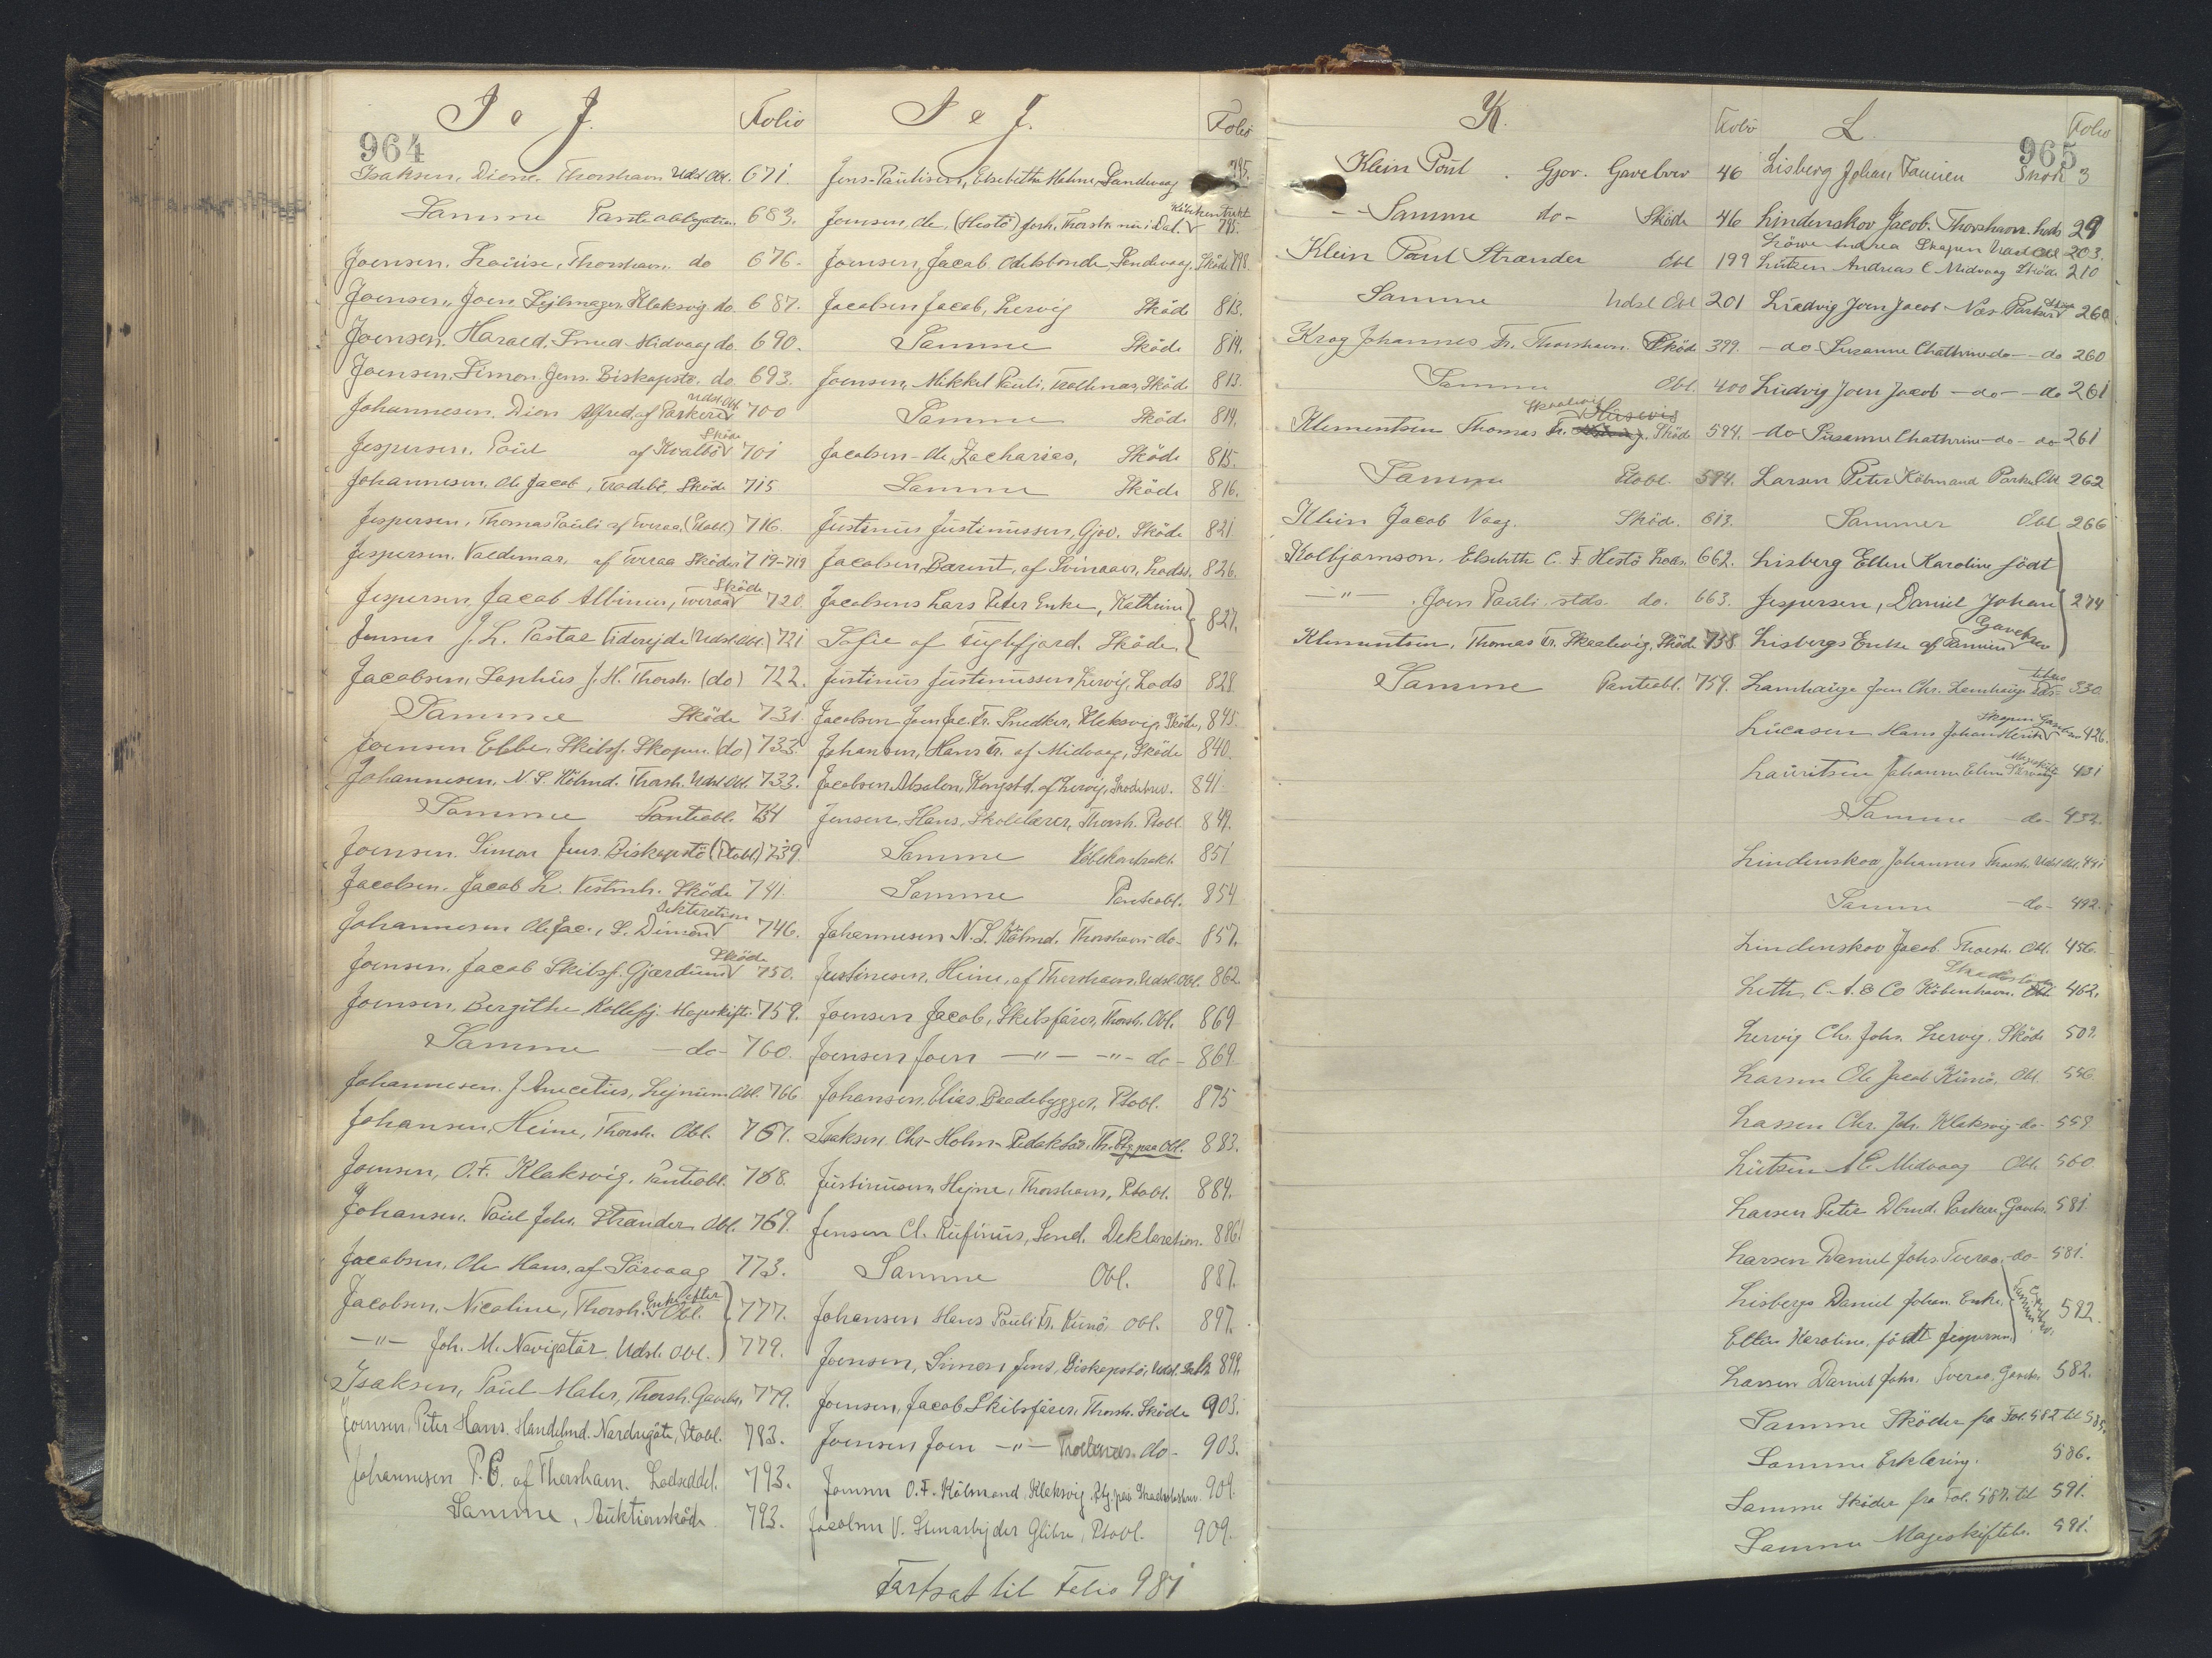 964
I & J.
Folio
Isaksen, Diene. Thorshavn Udsl Obl. 671.
Samme Panteobligation. 683.
Joensen. Louise, Thorshavn. do 676.
Joensen, Joen Sejlmager. Klaksvig do. 687.
Joensen. Harald. Smed Midvaag do. 690.
Joensen. Simon Jens. Biskopstö. do. 693.
Johannesen. Dion Alfred. af Porkeri Udsl Obl. 700
Jespersen. Poul af Kvalbö Sköde 701
Johannesen, Ole Jacob, Sköde 715
Jespersen, Thomas Pauli af Tveraa. (Ptobl.) 716.
Jespersen. Valdemar, af Tveraa Sköder 719-719
Jespersen, Jacob Albinus, Tveraa Sköde 720.
Jensen J. L. Pastae Viderejde (Udsl Obl.) 721
Jacobsen, Sophus J. H. Thorsh. (do) 722.
Samme Sköde 731
Joensen Ebbe, Skibsf. Skopun. (do) 733.
Johannesen. N. S. Kölmd. Thorsh. Udsl Obl. 733.
Samme Panteobl. 734
Joensen. Simon Jens. Biskopstö (Ptobl.) 739.
Jacobsen. Jacob L. Vestmh. Sköde 741
Johannesen Ole Jac., S. Dimon Deklaration 746.
Joensen. Jacob Skibsf. Gjærdum Sköde 750.
Joensen, Bergithe Kollefj. Mageskifte. 759.
Samme - do - 760.
Johannesen. J. Anecetius, Lejnum Obl. 766
Johansen, Heine, Thorsh. Obl. 767.
Joensen, O. F. Klaksvig. Panteobl. 768.
Johansen. Poul Johs. Strander Obl. 769.
Jacobsen, Ole Hans. af Sörvaag 773.
Jacobsen, Nicoline, Thorsh. Enke efter Obl. 777.
-"- Joh. M. Navigatör. Udsl. Obl. 779.
Isaksen, Poul Maler, Thorsh. Gavebr. 779.
Joensen, Peter Hans. Handelmd. Nordregöte, Ptobl. 783.
Johannesen P. C. af Thorshavn. Lodseddel. 793.
Samme, Auktionsköde 793.
I & J.
Folio
Jens-Paulisen, Elsebeth Malene, Sandvaag 795.
Joensen, Ole, (Hestö) forh. Thorsh. nu i Dal. Köbekontrakt 795.
Joensen, Jacob Odelsbonde Sandvaag. Sköde 798.
Jacobsen Jacob, Lervig Sköde 813.
Samme Sköde 814.
Joensen, Mikkel Pauli. Trollenæs, Sköde 813.
Samme Sköde 814.
Jacobsen - Ole, Zacharias, Sköde 815.
Samme Sköde 816.
Justinus Justinussen, Gjov. Sköde 821.
Jacobsen, Barent, af Svinaaer, Lods. 826.
Jacobsens Lars Peter Enke, Kathrine
Sofie af Fuglefjord. Sköde. 827.
Justinus Justinussen Lervig, Lods 828.
Jacobsen Joen Jac. Fr. Snedker, Kleksvig, Sköde, 845
Johansen, Hans Fr. af Midvaag, Sköde 840.
Jacobsen Absalon, Kongsbd. af Lervig, Sködebrev. 841.
Jensen, Hans, Skolelærer, Thorsh. Ptobl. 849.
Samme Köbekontrakt. 851
Samme Panteobl. 854
Johannesen N. S. Kölmd. Thorshavn - do - 857.
Justinesen, Heine, af Thorshavn. Udsl. Obl. 862
Joensen Jacob, Skibsförer, Thorsh. Obl. 869
Joensen Joen -"- -"- do - 869
Johansen. Elias. Baadebygger, Ptobl. 875
Isaksen Chr. Holm - Redaktör. Th. Ptg. paa Obl. 883.
Justinusen, Hejne, Thorshavn, Ptobl. 884.
Jensen Cl. Rufinus, Sand. Deklaration. 886
Samme Obl. 887.
Johansen Hans Pauli Fr. Kunö, Obl. 897.
Joensen, Simon Jens, Biskopstö, Udsl. 899.
Joensen, Jacob Skibsförer, Thorsh. Sköde 903.
Joensen Joen -"- Trollenæs. do - 903.
Joensen O. F. Kölmand, Klaksvig. Ptg. paa Skadeslesbrev. 909.
Jacobsen V. Stenarbejder Glibre, Ptobl. 909.
Fortsat til Folio 981
K.
Folio
Klein Poul. Gjov. Gavebrev 46
-- Samme do - Sköde 46
Klein Paul Strander Obl 199
Samme Udsl Obl 201
Krog Johannes Fr. Thorshavn. Sköde 399.
Samme Obl. 400
Klementsen Thomas Fr. Skaalevig Sköde 594.
Samme Ptobl. 594.
Klein Jacob Vaag. Sköd. 613.
Kolbjørnson. Elsebeth C. F. Hestö Lods. 662.
-"- . Joen Pauli. stds. do. 663.
Klementsen, Thomas Fr. Skaalevig, Sköde 758
Samme Panteobl. 759.
965
L.
Folio
Lisberg Johan, Famien Sköde 3
Lindenskov Jacob. Thorshavn. Lods 29
Löwe Andrea Skopun Udsl Obl 203.
Lützen Andreas C. Midvaag Sköde 210
Ludvig Joen Jacob - Næs. Porkeri Sköde 260
- do - Susanne Chathrine do - do 260
Ludvig Joen Jacob - do - do 261
- do Susanne Chathrine - do - do 261
Larsen Peter Köbmand Porkeri Obl 262
Sammer Obl 266
Lisberg Ellen Karoline födt
Jespersen, Daniel Johan 274
Lisbergs Enke af Famien Gavebrev
Lamhauge Joen Chr. Lamhauge 330.
Lucasen Hans Johan Henrik Skopun Gavebrev 426.
Lauritsen Johanne Elene Sörvaag Mageskifte 431
Samme - do - 432.
Lindenskov, Johannes Thorsh. Udsl Obl. 491
Samme - do - 492.
Lindenskov Jacob. Thorsh. Obl. 456.
Leth, C. A. & Co Köbenhavn. Skadeslosbr. 462.
Lervig Chr. Johs. Lervig. Sköde 509.
Larsen Ole Jacob Kunö, Obl. 556.
Lassen Chr. Joh. Klaksvig - do - 559
Lützen A. C. Midvaag Obl. 560
Larsen Peter Dbmd. Porkeri, Gavebr. 581.
Larsen Daniel Johs. Tveraa, - do - 581.
Lisbergs Daniel Johan. Enke,
Ellen Karoline, födt Jespersen. 592.
Larsen Daniel Johs. Tveraa. Gavebr. 582.
Samme Sköder fra Fol. 582 til 585.
Samme Erklæring. 586.
Samme Sköder fra Fol. 587. til 591.
Samme Mageskiftebr. 591.